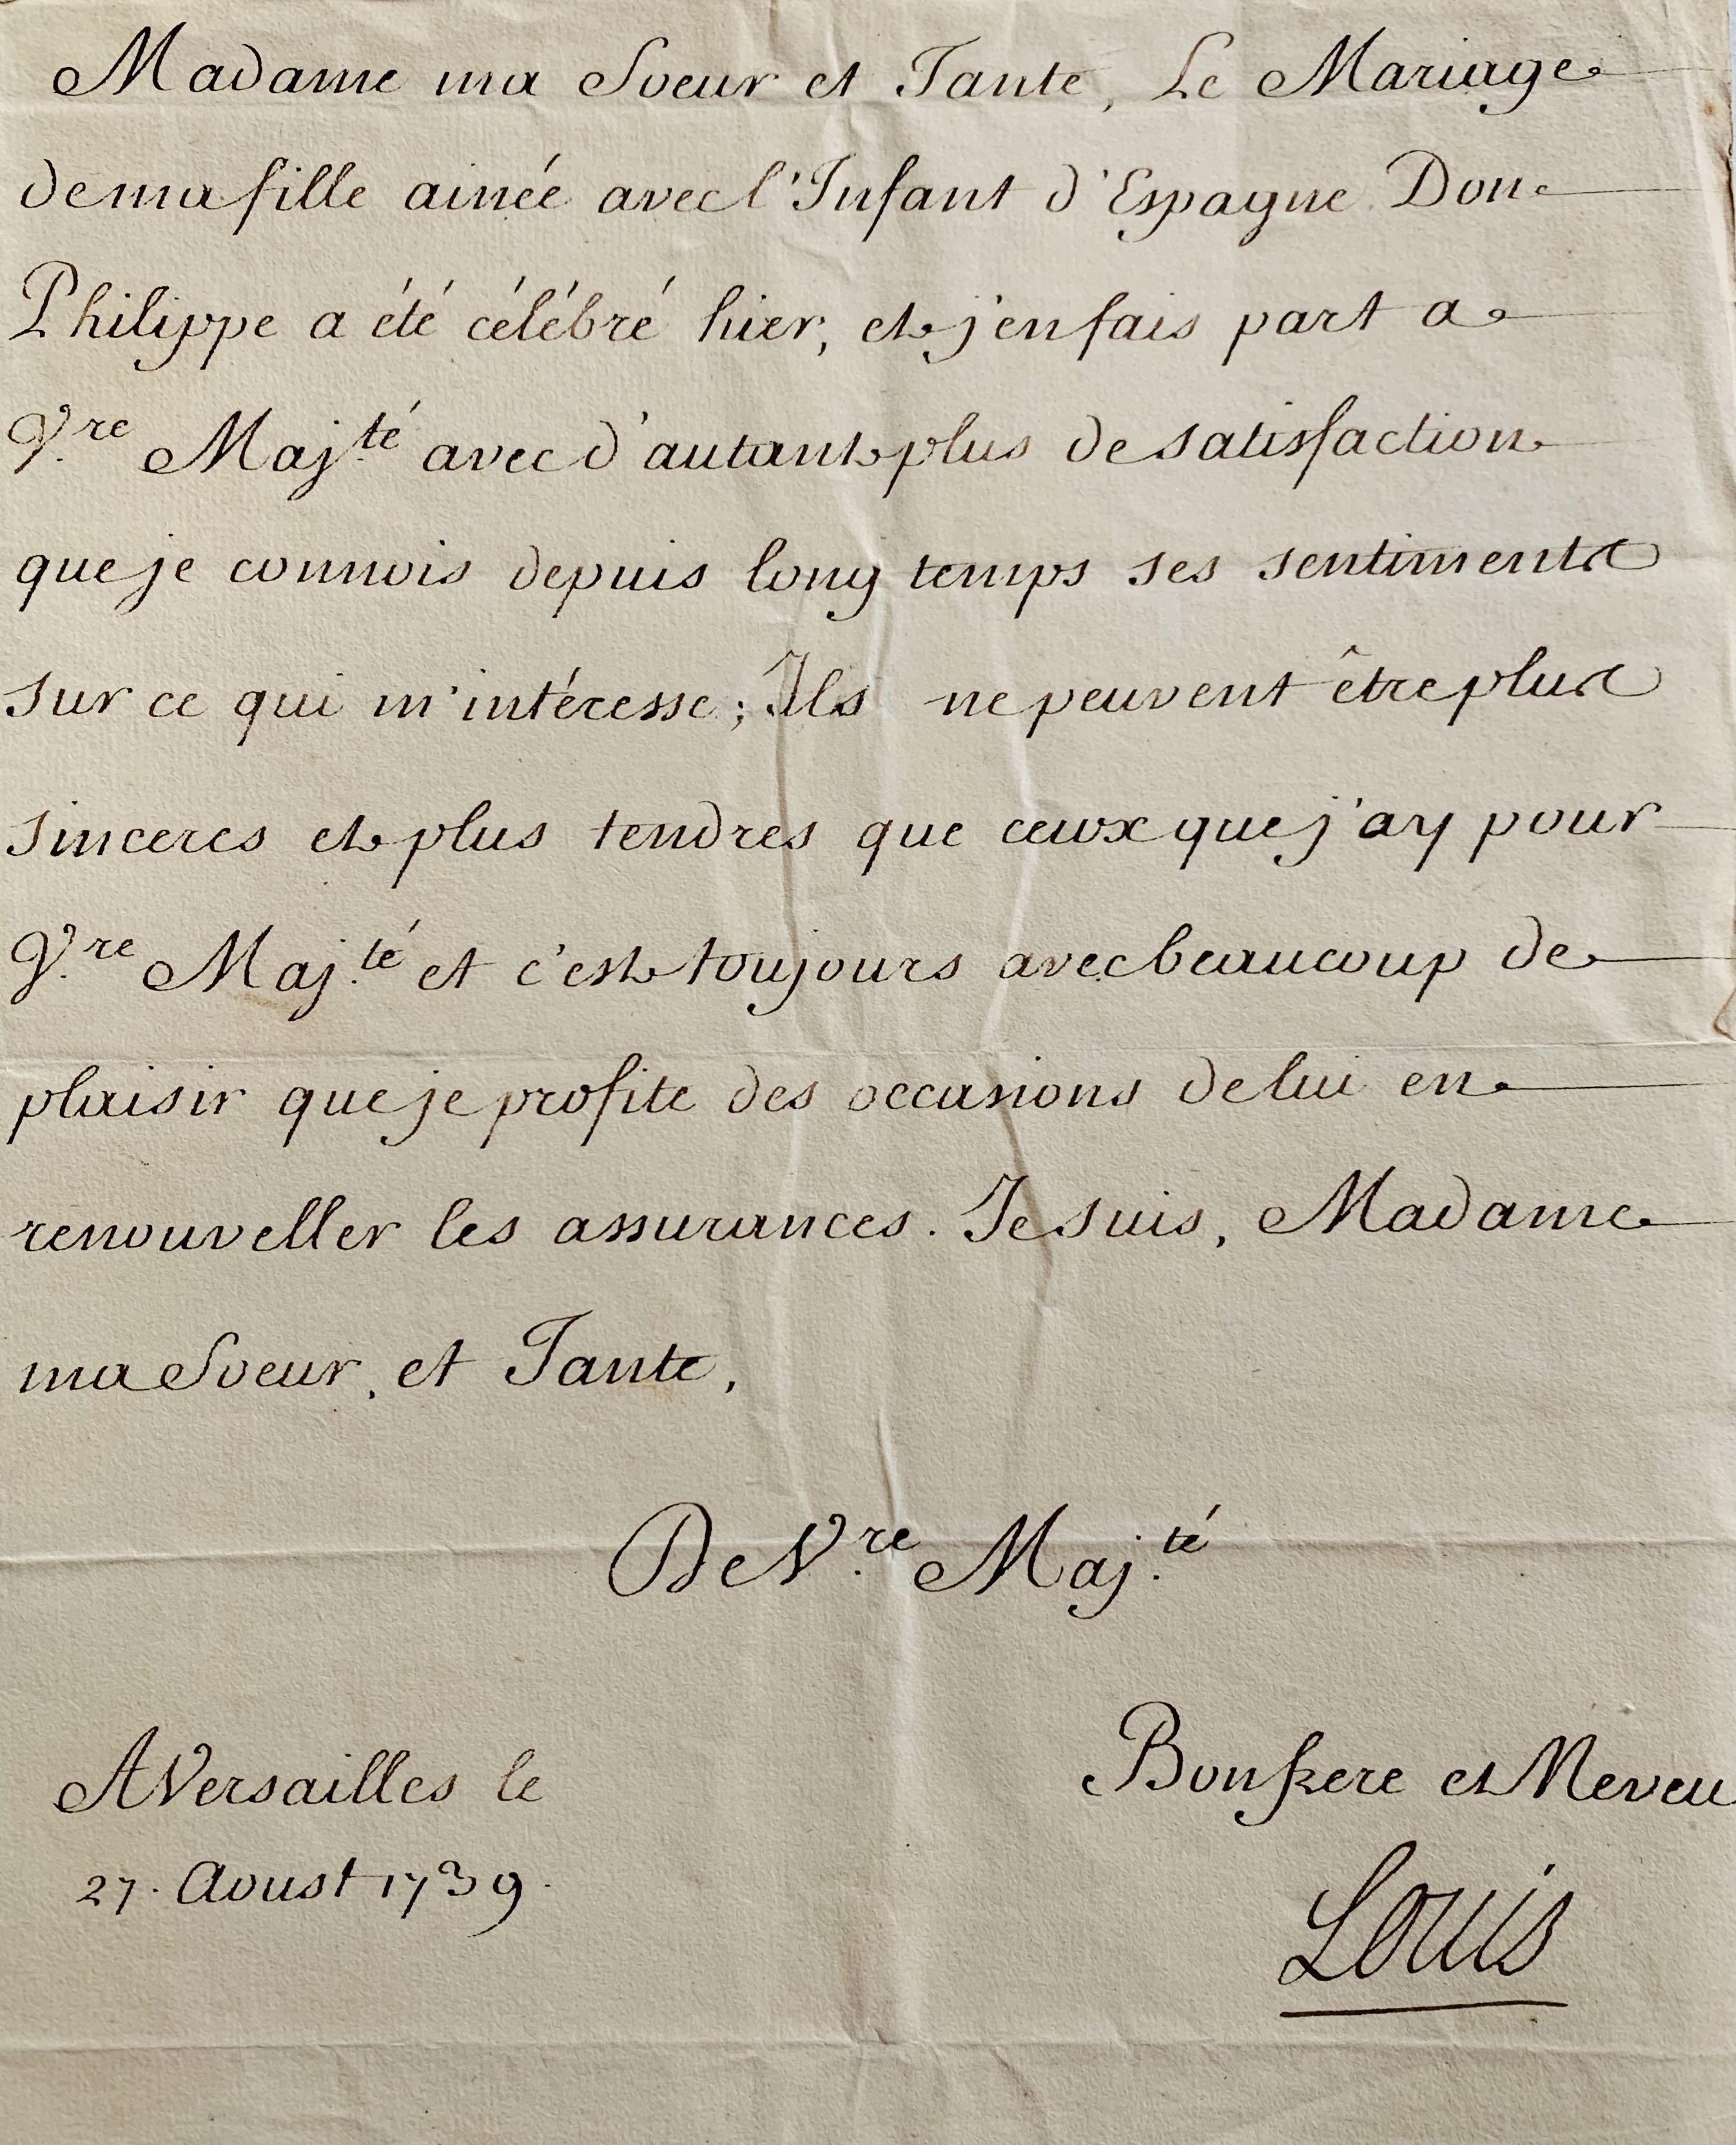 Madame ma Soeur et Tante, Le Mariage
de ma fille ainée avec l'Infant d'Espagne Don
Philippe a été célébré hier, et j'en fais part a
V.re Maj.té avec d'autant plus de satisfaction
que je connois depuis long temps ses sentiments
sur ce qui m'intéresse; Ils ne peuvent être plus
sinceres et plus tendres que ceux que j'ay pour
V.re Maj.té et c'est toujours avec beaucoup de
plaisir que je profite des occasions de lui en
renouveller les assurances. Je suis, Madame
ma Soeur, et Tante,
De V.re Maj.té
Bon frere et Neveu
A Versailles le
27. Aoust 1739.
Louis